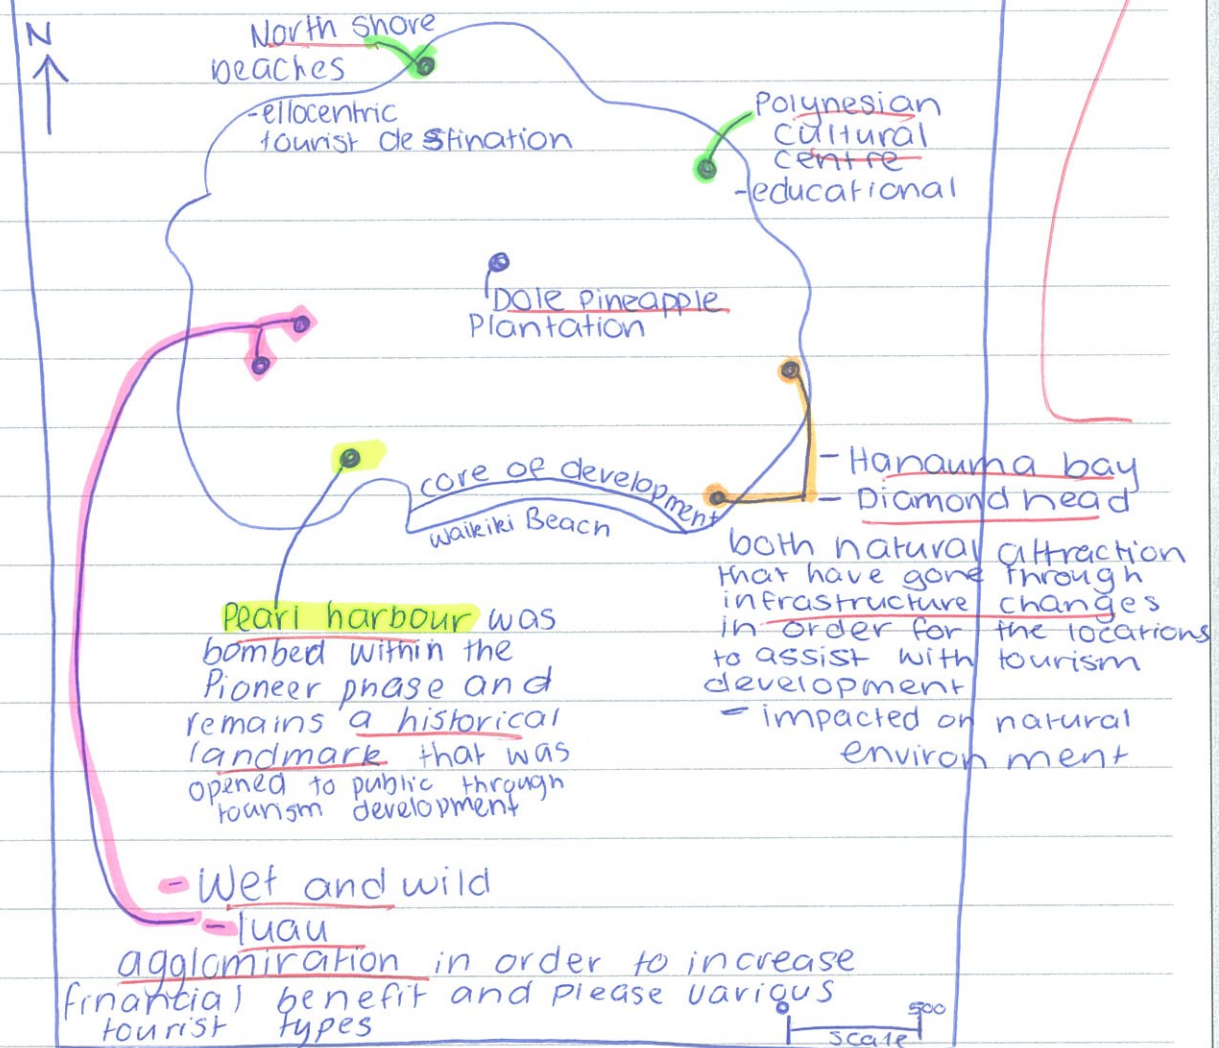 N
North shore
beaches
-ellocentric
tourist destination
Polynesian
Cultural
centre
-educational
Dole Pineapple
Plantation
core of development
Waikiki Beach
- Hanauma bay
- Diamond head
both natural attraction
that have gone through
infrastructure changes
in order for the locations
to assist with tourism
development
- impacted on natural
environment
Pearl harbour was
bombed within the
Pioneer phase and
remains a historical
landmark that was
opened to public through
tourism development
- Wet and wild
- luau
agglomiration in order to increase
financial benefit and please various
tourist types
0 500
scale